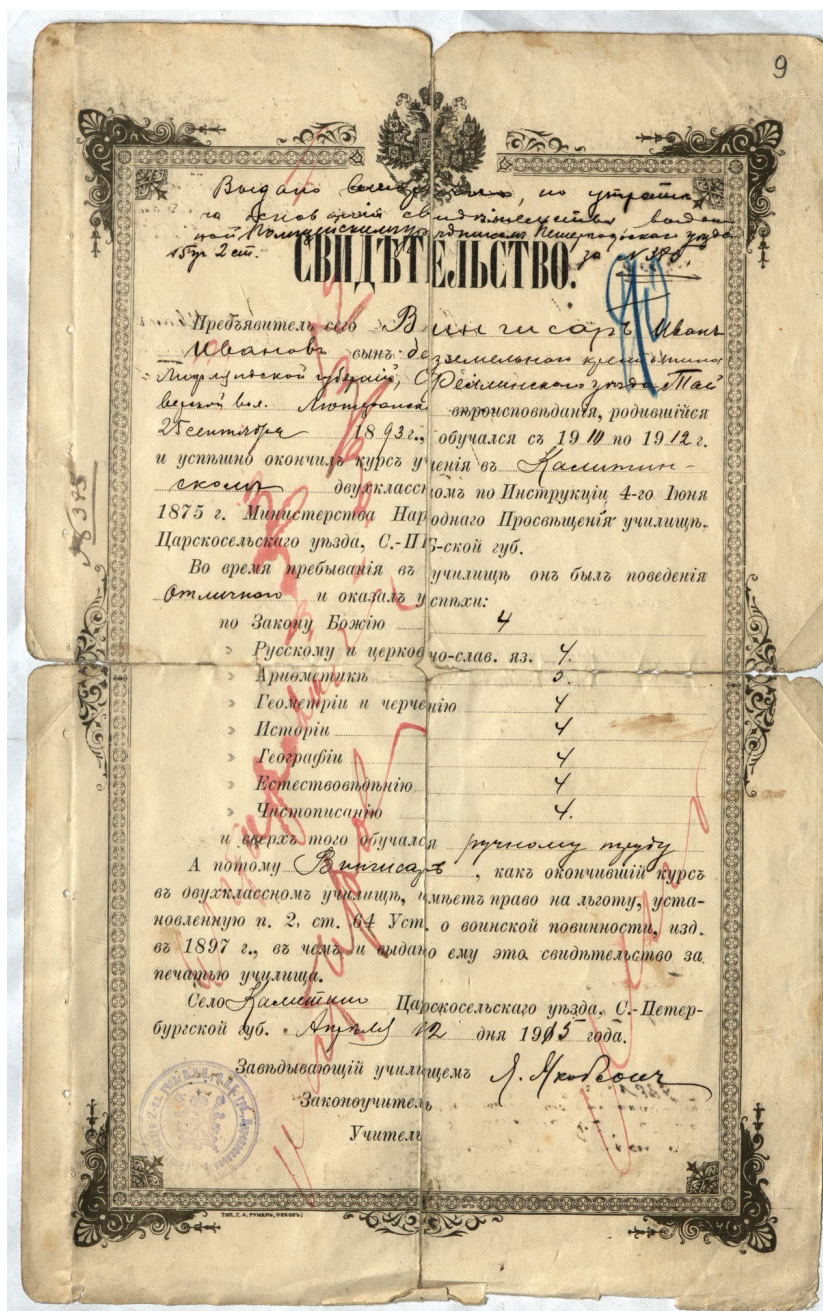 9
Выдано вторично, по утратѣ
на основаніи свидѣтельства выдан
ной Полицейскимъ урядникомъ Петергофскаго уѣзда
15 уч. 2 ст. за № 380.
СВИДѢТЕЛЬСТВО.
Предъявитель сего Вингисаръ Иванъ
Ивановъ сынъ безземельного крестьянина
Лифляндской губерніи, Феллинскаго уѣзда, Тай
верской вол. Лютеранска вѣроисповѣданія, родившійся
25 сентября 1893 г., обучался съ 1910 по 1912 г.
и успѣшно окончилъ курсъ ученія въ Калитин-
скомъ двухклассномъ по Инструкціи 4-го Іюня
1875 г. Министерства Народнаго Просвѣщенія училищѣ,
Царскосельскаго уѣзда, С.-ПБ-ской губ.
Во время пребыванія въ училищѣ онъ былъ поведенія
отличнаго и оказалъ успѣхи:
по Закону Божію 4
» Русскому и церковно-слав. яз. 4.
» Ариѳметикѣ 3.
» Геометріи и черченію 4
» Исторіи 4
» Географіи 4
» Естествовѣдѣнію 4
» Чистописанію 4.
и сверхъ того обучался ручному труду
А потому Вингисаръ, какъ окончившій курсъ
въ двухклассномъ училищѣ, имѣетъ право на льготу, уста-
новленную п. 2, ст. 64 Уст. о воинской повинности, изд.
въ 1897 г., въ чемъ и выдано ему это свидѣтельство за
печатью училища.
Село Калитино Царскосельскаго уѣзда, С.-Петер-
бургской губ. Апрѣля 12 дня 1915 года.
Завѣдывающій училищемъ Я. Якобсонъ
Законоучитель
Учитель
№ 375
ТИП. С. А. РУМЕЛЬ, ПСКОВЪ.